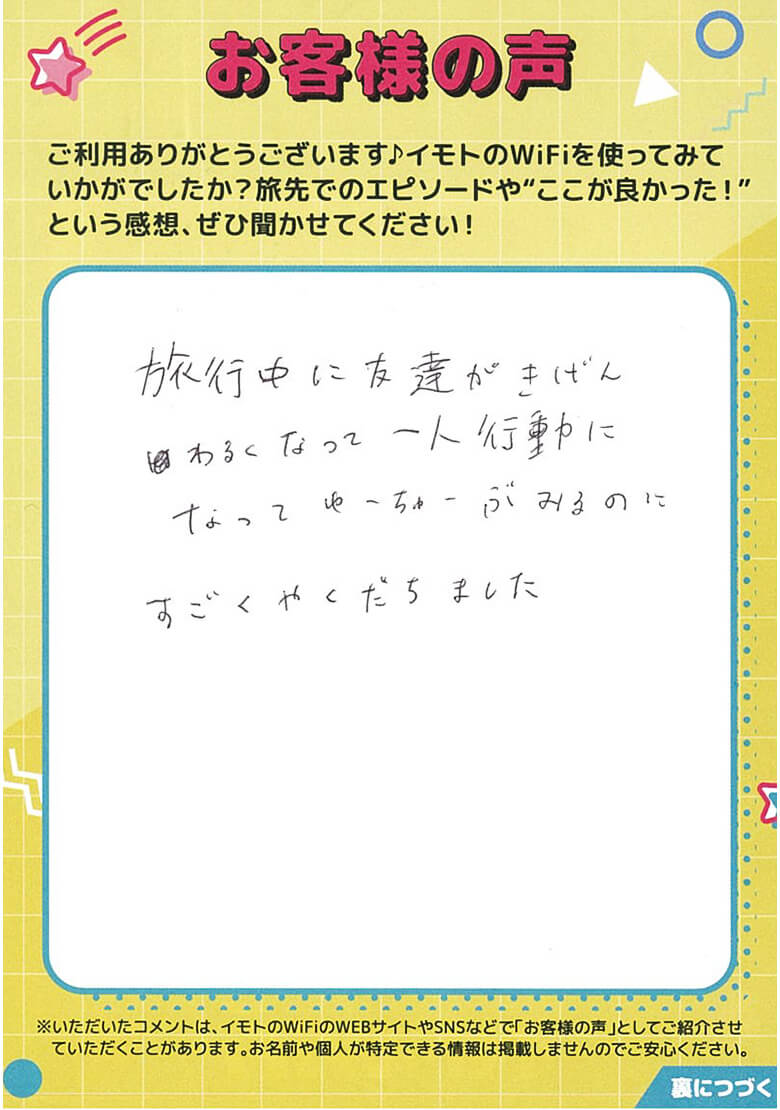 お客様の声
ご利用ありがとうございます♪イモトのWiFiを使ってみて
いかがでしたか？旅先でのエピソードや“ここが良かった！”
という感想、ぜひ聞かせてください！
旅行中に友達がきげん
わるくなって一人行動に
なってゆーちゅーぶみるのに
すごくやくだちました
※いただいたコメントは、イモトのWiFiのWEBサイトやSNSなどで「お客様の声」としてご紹介させ
ていただくことがあります。お名前や個人が特定できる情報は掲載しませんのでご安心ください。
裏につづく